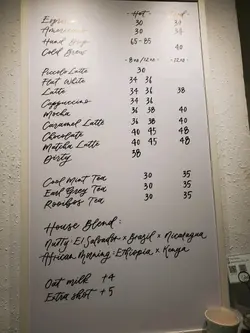 - Hot -
Espresso 30 30
Americano 30 35
Hand Drip 65-85
Cold Brew 40
- 8 oz / 12 oz - - 12 oz -
Piccolo Latte 30
Flat White 34 36
Latte 34 36 38
Cappuccino 34 36
Mocha 38 40
Caramel Latte 36 38 40
Chocolate 40 45 48
Matcha Latte 40 45 48
Dirty 38
Cool Mint Tea 30 35
Earl Grey Tea 30 35
Rooibos Tea 30 35
House Blend:
Nutty: El Salvador × Brazil × Nicaragua
African Morning: Ethiopia × Kenya
Oat milk +4
Extra shot +5